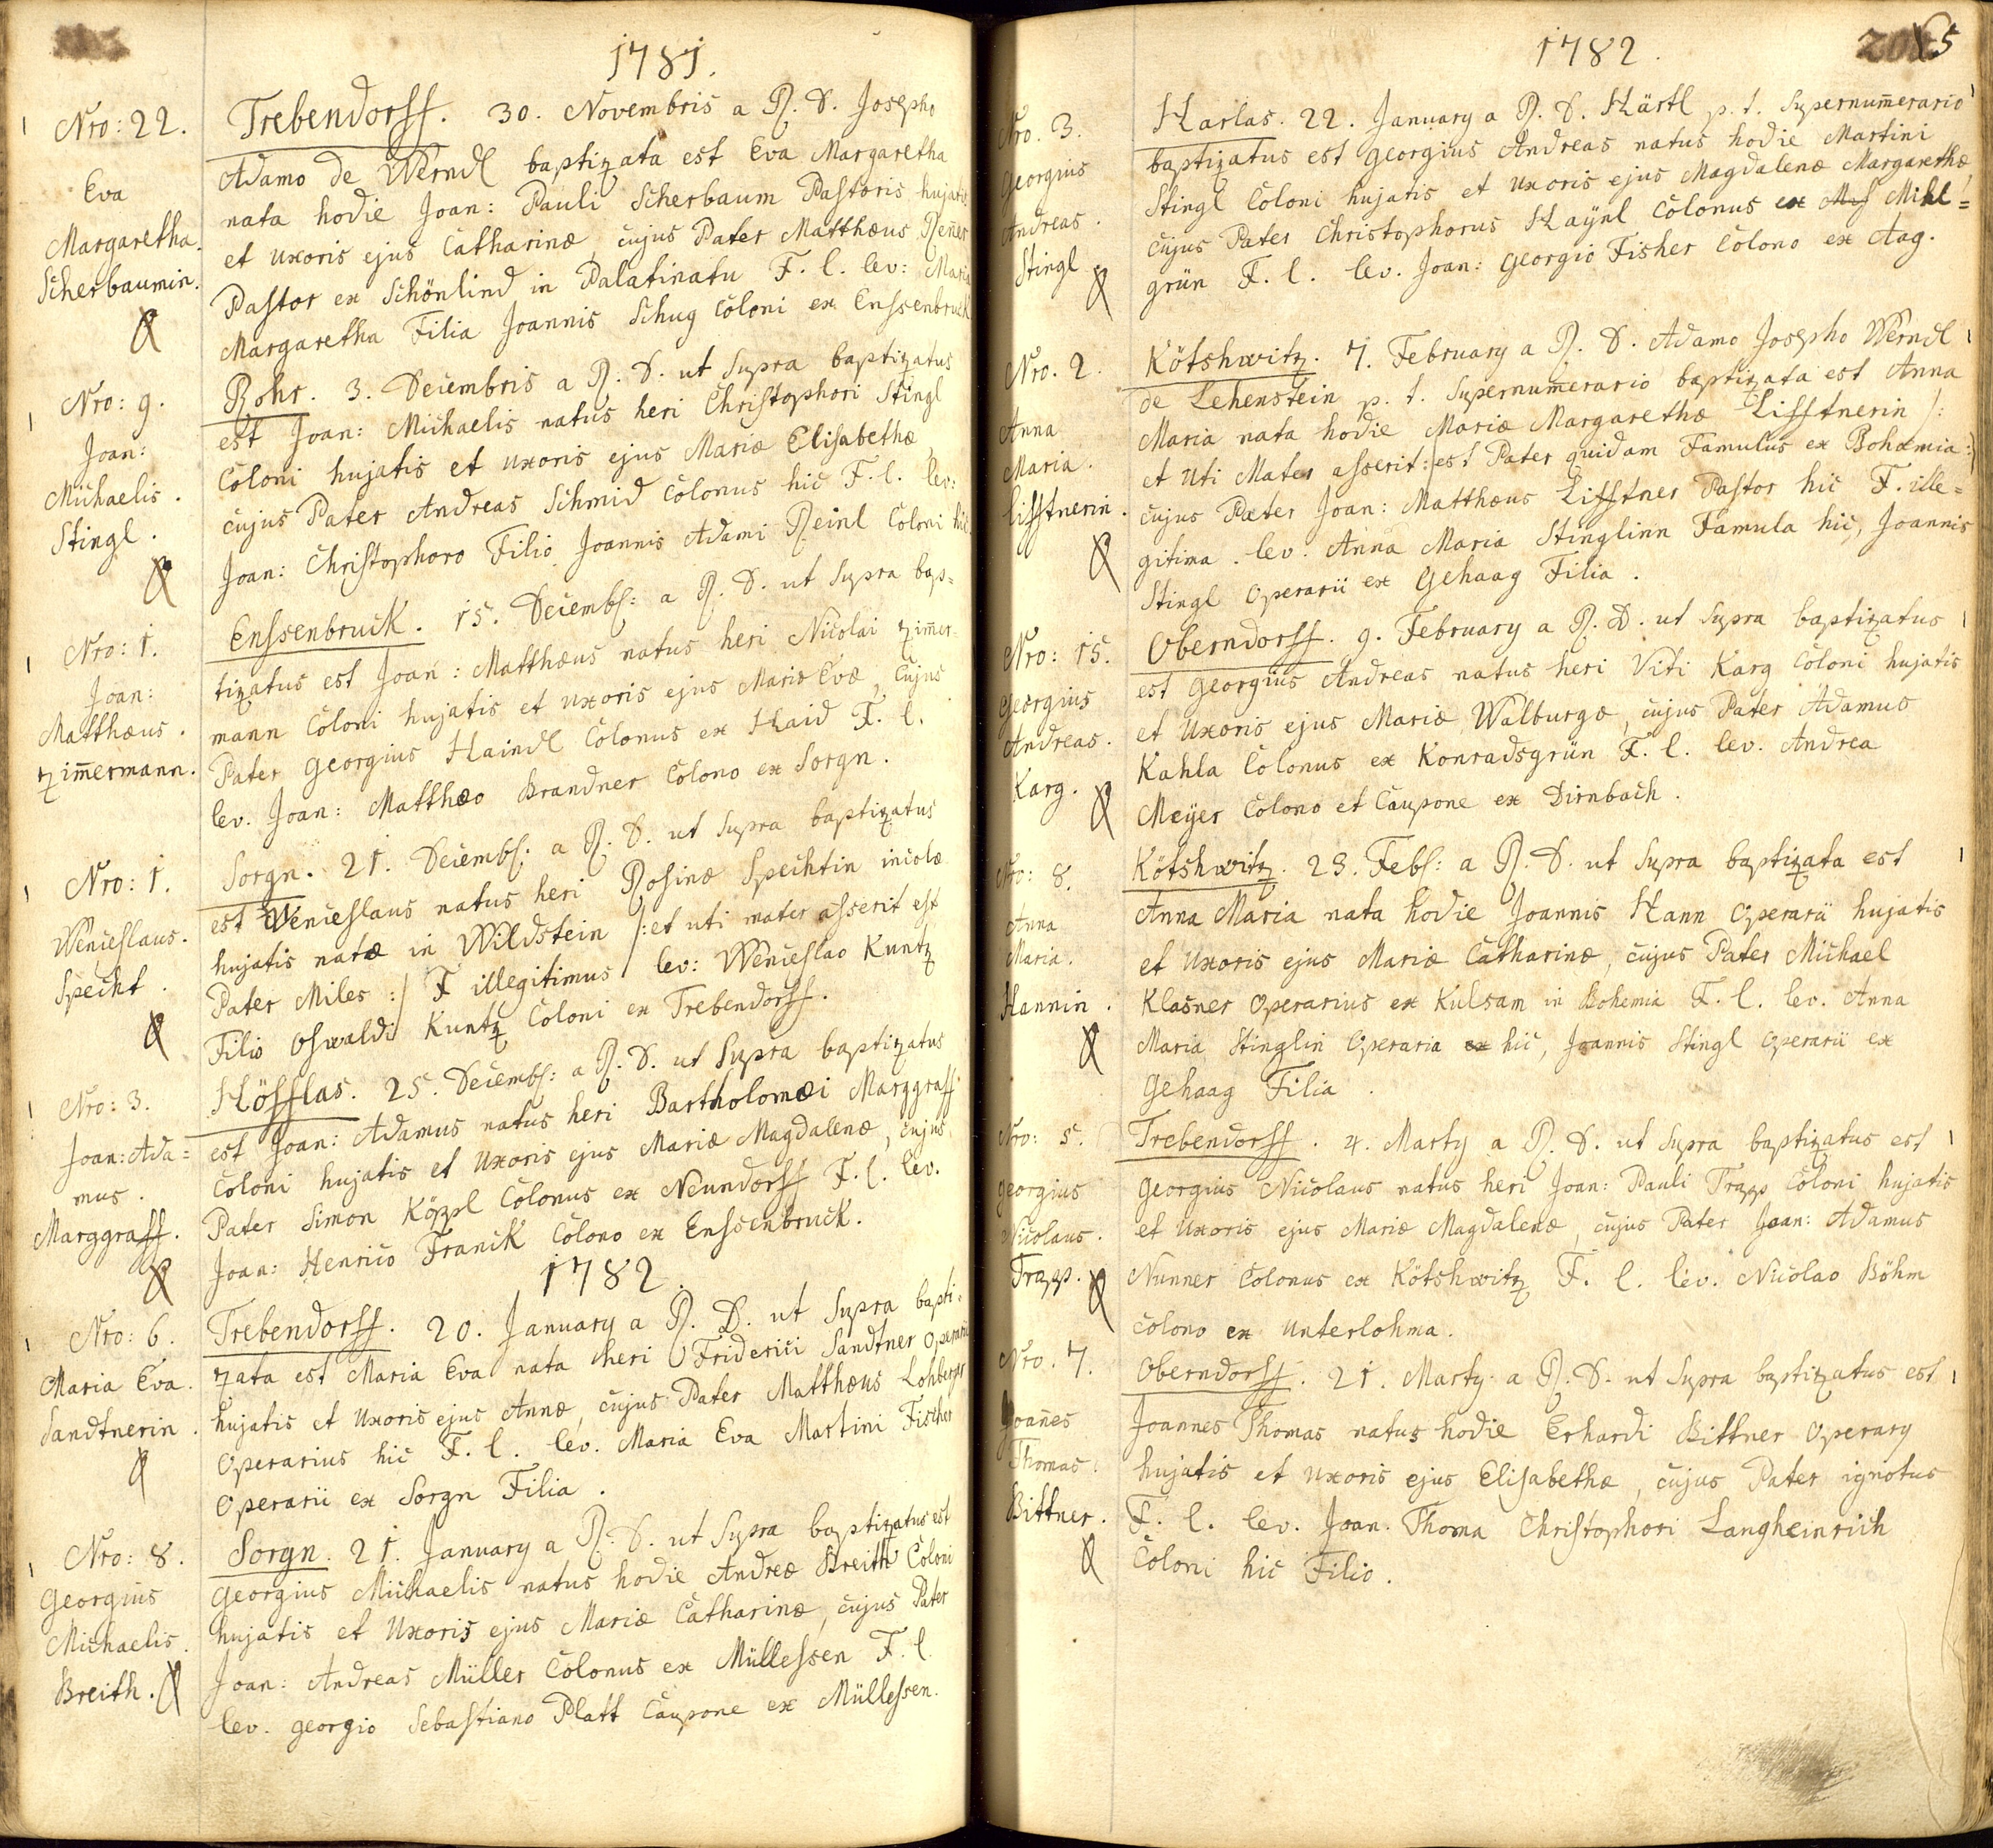 1781.
Nro: 22.
Eva
Margaretha.
Scherbaumin.
Trebendorff. 30. Novembris a R. D. Josepho
Adamo de Werndl baptizata est Eva Margaretha
nata hodie Joan: Pauli Scherbaum Pastoris hujatis
et uxoris ejus Catharinæ, cujus Pater Matthæus Reñer
Pastor ex Schönlind in Palatinatu F. l. lev: Maria
Margaretha Filia Joannis Schug Coloni ex Enssenbruck
Nro: 9.
Joan:
Michaelis.
Stingl.
Rohr. 3. Decembris a R. D. ut Supra baptizatus
est Joan: Michaelis natus heri Christophori Stingl
Coloni hujatis et uxoris ejus Mariæ Elisabethæ
cujus Pater Andreas Schmid Colonus hic F. l. lev:
Joan: Christophoro Filio Joannis Adami Reinl Coloni hic.
Nro: 1.
Joan:
Matthæus.
Zim̃ermann.
Enssenbruck. 15. Decembs: a R. D. ut Supra bap=
tizatus est Joan: Matthæus natus heri Nicolai Zim̃er=
mann Coloni hujatis et uxoris ejus Mariæ Evæ, cujus
Pater Georgius Haindl Colonus ex Haid F. l.
lev. Joan: Matthæo Brandner Colono ex Sorgn.
Nro: 1.
Wenceslaus.
Specht.
Sorgn. 21. Decembs: a R. D. ut Supra baptizatus
est Wenceslaus natus heri Rosinæ Spechtin incolæ
hujatis natæ in Wildstein /: et uti mater asserit est
Pater Miles :/ F illegitimus lev: Wenceslao Kuntz
Filio Oswaldi Kuntz Coloni ex Trebendorff.
Nro: 3.
Joan: Ada=
mus.
Marggraff.
Höfflas. 25. Decembs: a R. D. ut Supra baptizatus
est Joan: Adamus natus heri Bartholomæi Marggraff
Coloni hujatis et Uxoris ejus Mariæ Magdalenæ, cujus
Pater Simon Köppl Colonus ex Neundorff F. l. lev.
Joan: Henrico Franck Colono ex Enssenbruck.
1782.
Nro: 6.
Maria Eva.
Sandtnerin.
Trebendorff. 20. January a R. D. ut Supra bapti=
zata est Maria Eva nata heri Friderici Sandtner Operarii
hujatis et Uxoris ejus Annæ, cujus Pater Matthæus Lohberger
Operarius hic F. l. lev. Maria Eva Martini Fischer
Operarii ex Sorgn Filia.
Nro: 8.
Georgius
Michaelis.
Breith.
Sorgn. 21. January a R. D. ut Supra baptizatus est
Georgius Michaelis natus hodie Andreæ Breith Coloni
hujatis et Uxoris ejus Mariæ Catharinæ, cujus Pater
Joan: Andreas Müller Colonus ex Müllessen F. l.
lev. Georgio Sebastiano Platt Caupone ex Müllessen.
1782.
Nro. 3.
Georgius
Andreas.
Stingl.
Harlas. 22. January a R. D. Härtl p. t. Supernum̃erario
baptizatus est Georgius Andreas natus hodie Martini
Stingl Coloni hujatis et Uxoris ejus Magdalenæ Margarethæ
cujus Pater Christophorus Haÿnl Colonus ex Mihl=
grün F. l. lev. Joan: Georgio Fisher Colono ex Aag.
Nro. 2.
Anna
Maria.
Lifftnerin.
Kötshwitz. 7. February a R. D. Adamo Josepho Werndl
de Lehenstein p. t. Supernum̃erario baptizata est Anna
Maria nata hodie Mariæ Margarethæ Lifftnerin /:
et Uti Mater asserit: est Pater quidam Famulus ex Bohæmia :/
cujus Pater Joan: Matthæus Lifftner Pastor hic F. ille=
gitima. lev. Anna Maria Stinglinn Famula hic, Joannis
Stingl Operarii ex Gehaag Filia.
Nro: 15.
Georgius
Andreas.
Karg.
Oberndorff. 9. February a R. D. ut Supra baptizatus
est Georgius Andreas natus heri Viti Karg Coloni hujatis
et Uxoris ejus Mariæ Walburgæ, cujus Pater Adamus
Kahla Colonus ex Konradsgrün F. l. lev. Andrea
Meÿer Colono et Caupone ex Dirnbach.
Nro: 8.
Anna
Maria.
Hannin.
Kötshwitz. 23. Febs: a R. D. ut Supra baptizata est
Anna Maria nata hodie Joannis Hann Operarii hujatis
et Uxoris ejus Mariæ Catharinæ, cujus Pater Michael
Klasner Operarius ex Kulsam in Bohemia F. l. lev. Anna
Maria Stinglin Operaria ex hic, Joannis Stingl Operarii ex
Gehaag Filia.
Nro: 5.
Georgius
Nicolaus.
Trapp.
Trebendorff. 4. Marty a R. D. ut Supra baptizatus est
Georgius Nicolaus natus heri Joan: Pauli Trapp Coloni hujatis
et Uxoris ejus Mariæ Magdalenæ, cujus Pater Joan: Adamus
Nunner Colonus ex Kötshwitz F. l. lev. Nicolao Böhm
Colono ex Unterlohma.
Nro. 7.
Joañes
Thomas.
Bittner.
Oberndorff. 21. Marty a R. D. ut Supra baptizatus est
Joannes Thomas natus hodie Erhardi Bittner Operary
hujatis et Uxoris ejus Elisabethæ, cujus Pater ignotus
F. l. lev. Joan. Thoma Christophori Langheinrich
Coloni hic Filio.